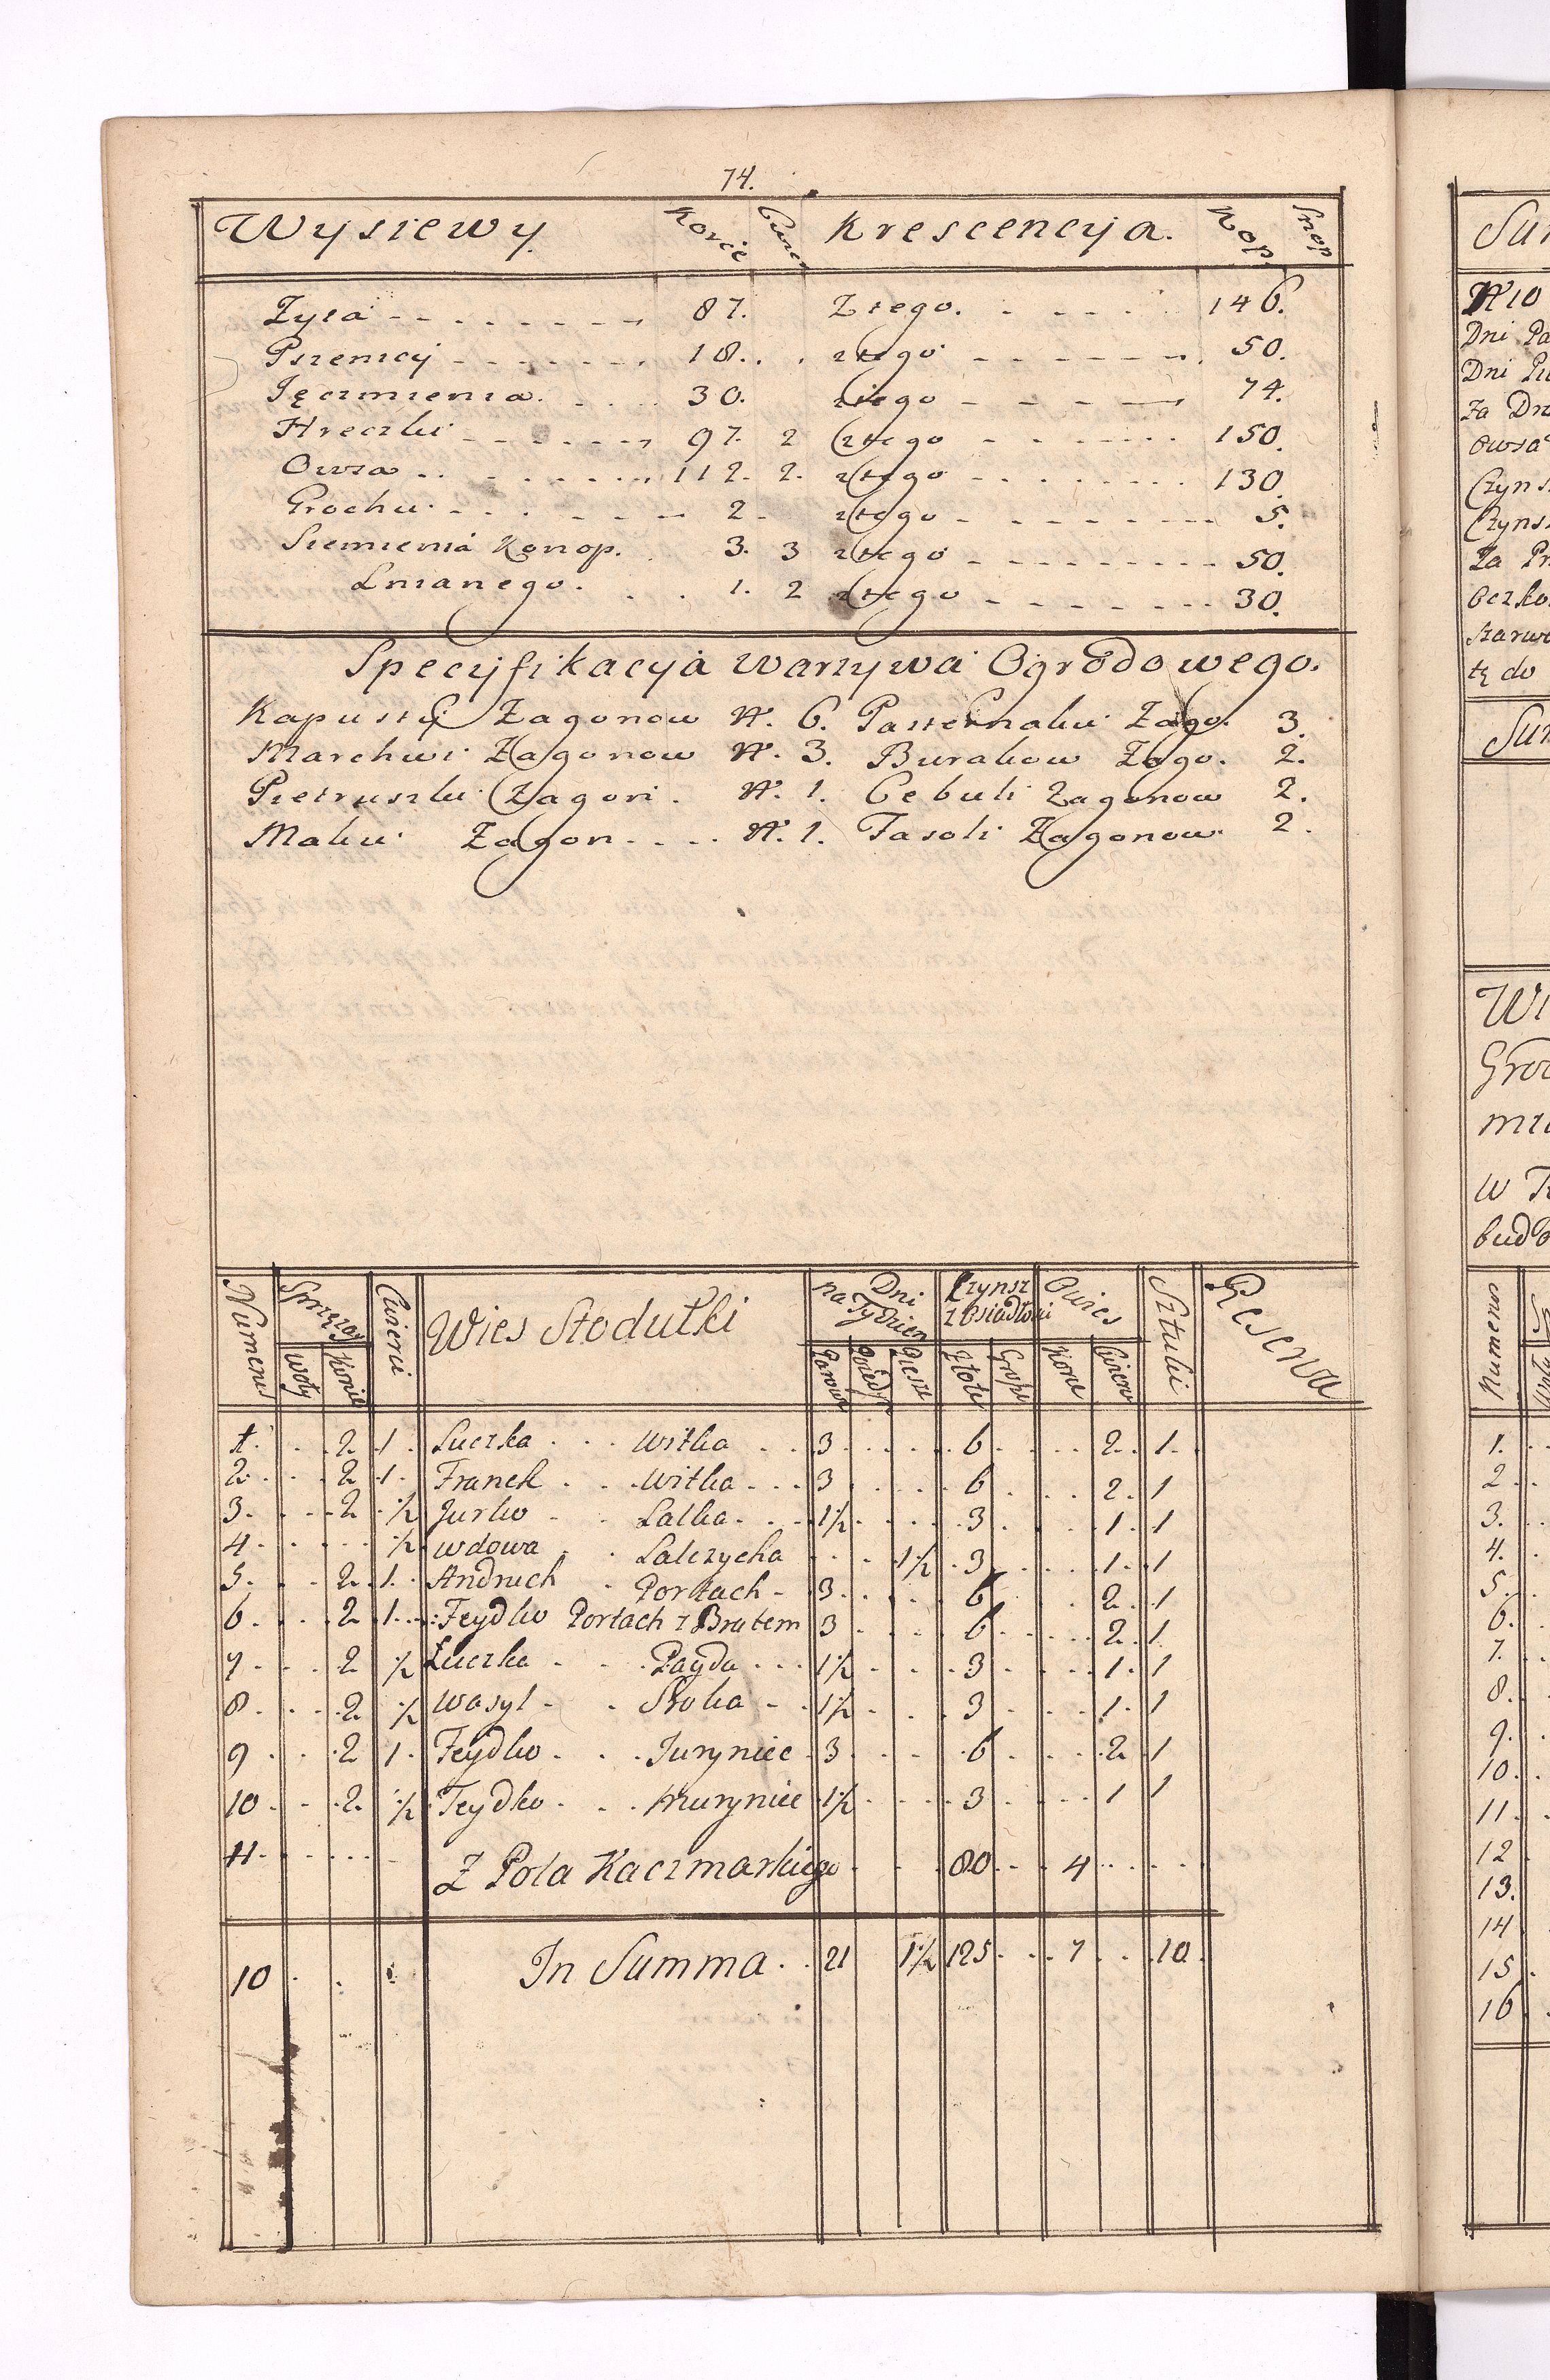 74.
Wysiewy. Korce Cwier Krescencyja. Kop Snop
Zyta 87. Z tego. 146.
Pszenicy 18. z tego 50.
Jęczmienia. 30. z tego 74.
Hreczki 97. 2 z tego 150.
Owsa 112. 2. z tego 130.
Grochu. 2 z tego 5.
Siemienia Konop. 3. 3 z tego 50.
Lnianego. 1. 2 z tego 30.
Specyfikacyja warzywa Ogrodowego.
Kapusty Zagonow N. 6. Pasternaku Zago. 3.
Marchwi Zagonow N. 3. Burakow Zago. 2.
Pietruszki Zagon. N. 1. Cebuli Zagonow 2.
Maku Zagon N. 1. Fasoli Zagonow 2.
Numerus Sprzęzay Cwierci Wies Stodułki Dni na Tydzien Czynsz z Osiadłosci Owies Sztuki
Woły Konie Parowe Piesze Złote Grosze Korce Cwierci
1. 2. 1. Luczka Witka 3 6 2. 1.
2. 2 1. Franek Witka 3 6 2. 1
3. 2 ½ Jurko Lalka 1½ 3 1. 1
4. ½ Wdowa Lalczycha 1½ 3 1. 1
5. 2. 1. Andruch Portach 3 6 2. 1
6. 2. 1. Feydko Portach z Bratem 3 6 2. 1
7. 2. ½ Łuczka Payda 1½ 3 1. 1
8. 2. ½ Wasyl Sroka 1½ 3 1. 1
9 2 1. Feydko Juryniec 3 6 2. 1
10. 2. ½ Feydko Muryniec 1½ 3 1 1
11. Z Pola Kaczmarkiego 80 4
10 In Summa. 21 1½ 125. 7 10.
Dni Pa
Dni Pi
Za Dn
Owsa
Czyns
Czyns
Za Pr
Oczko
tę do
Sum
Wi
Gro
w T
Numerus
1.
2
3.
4.
5.
6.
7.
8.
9.
10.
11.
12
13.
14
15.
16